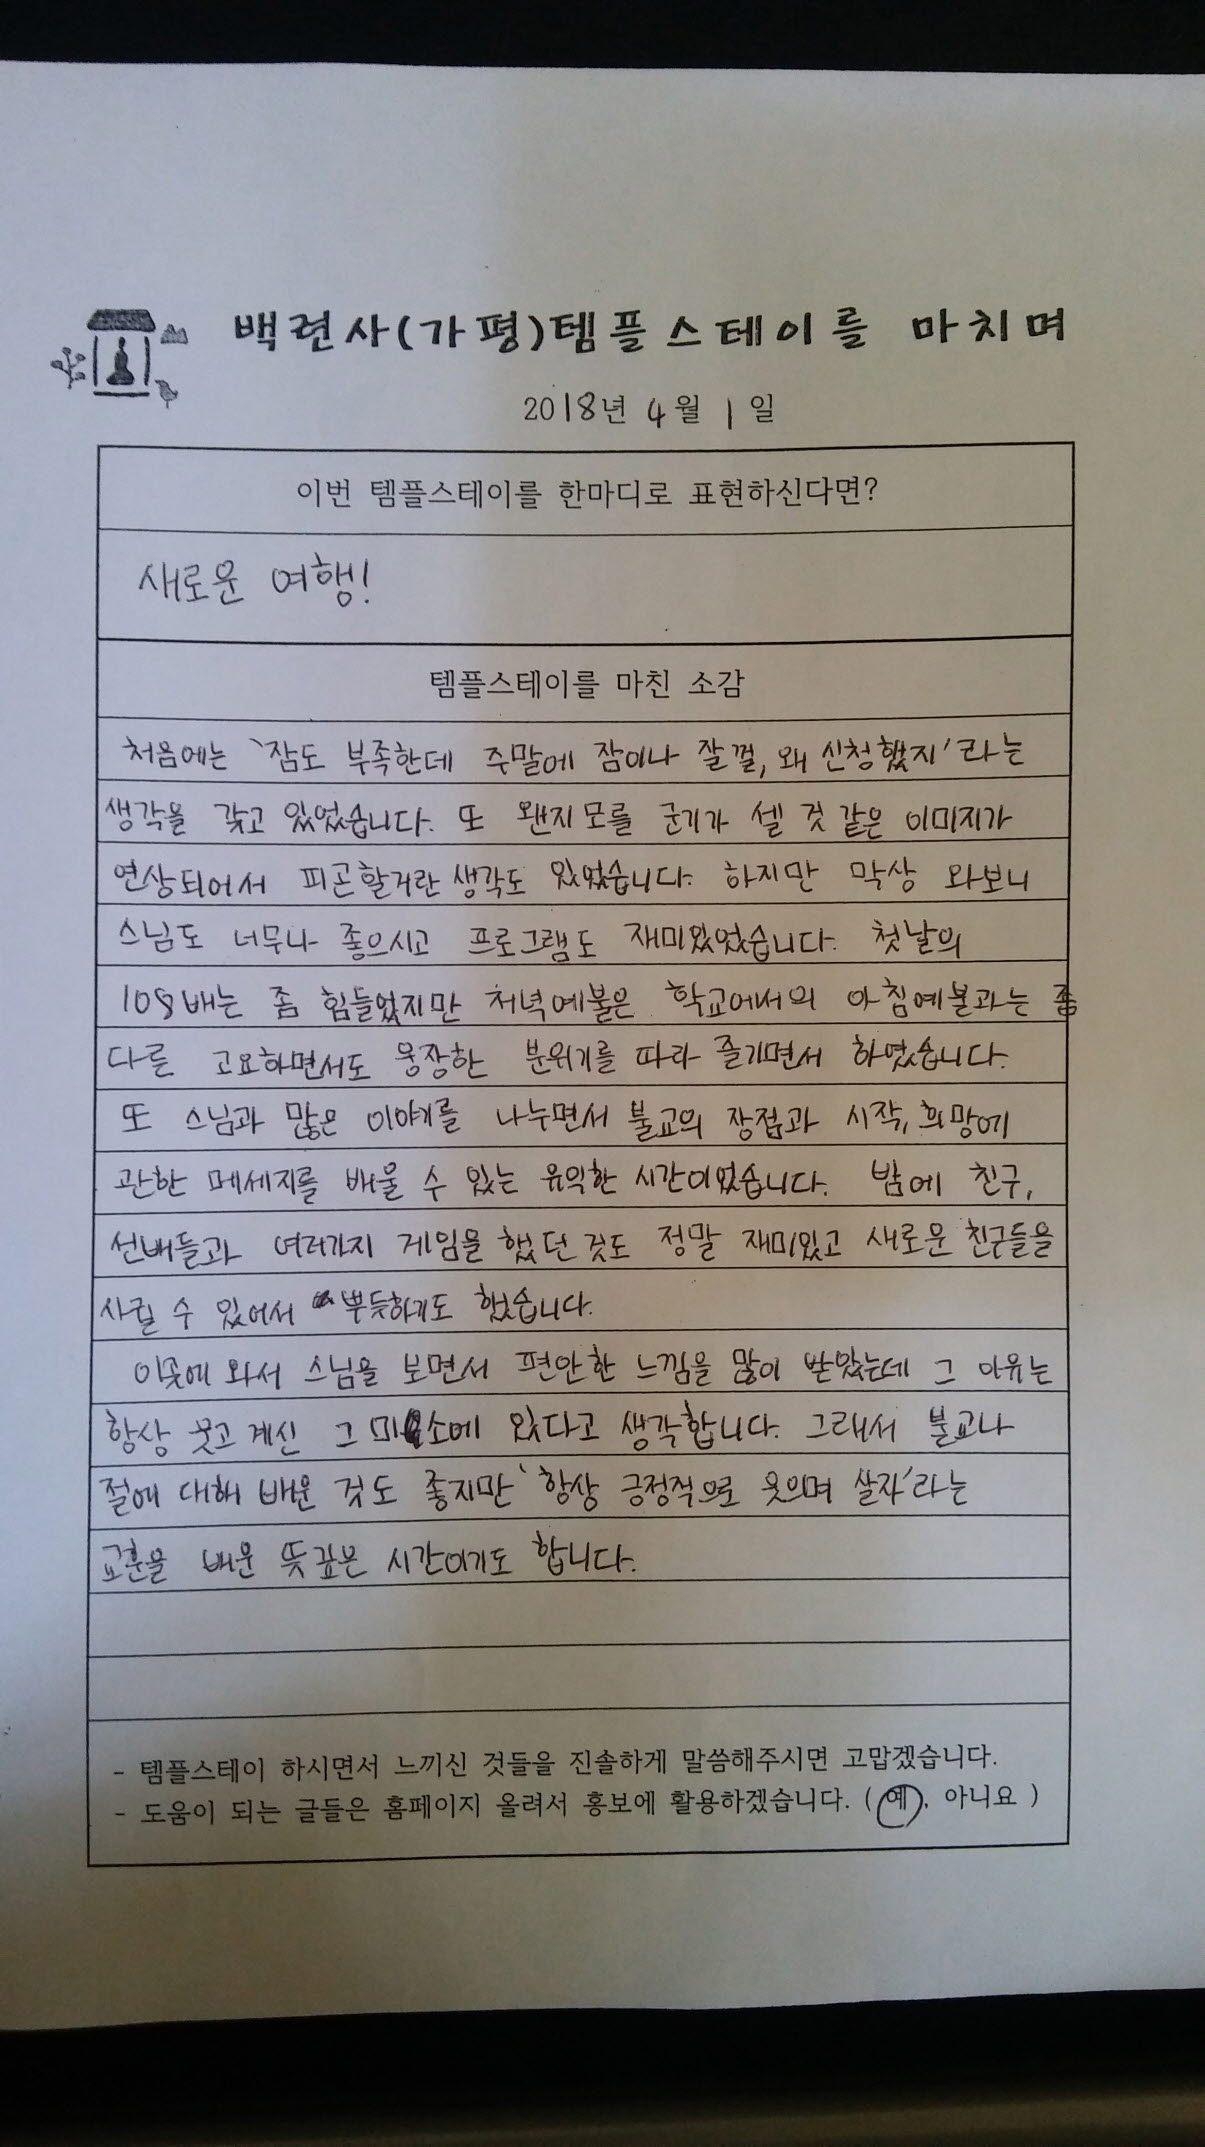 백련사(가평)템플스테이를 마치며
2018년 4월 1일
이번 템플스테이를 한마디로 표현하신다면?
새로운 여행!
템플스테이를 마친 소감
처음에는 '잠도 부족한데 주말에 잠이나 잘껄, 왜 신청했지'라는
생각을 갖고 있었습니다. 또 왠지모를 군기가 셀 것 같은 이미지가
연상되어서 피곤할거란 생각도 있었습니다. 하지만 막상 와보니
스님도 너무나 좋으시고 프로그램도 재미있었습니다. 첫날의
108배는 좀 힘들었지만 저녁예불은 학교에서의 아침예불과는 좀
다른 고요하면서도 웅장한 분위기를 따라 즐기면서 하였습니다.
또 스님과 많은 이야기를 나누면서 불교의 장점과 시작, 희망에
관한 메세지를 배울 수 있는 유익한 시간이었습니다. 밤에 친구,
선배들과 여러가지 게임을 했던 것도 정말 재미있고 새로운 친구들을
사귈 수 있어서 뿌듯하기도 했습니다.
이곳에 와서 스님을 보면서 편안한 느낌을 많이 받았는데 그 이유는
항상 웃고 계신 그 미소에 있다고 생각합니다. 그래서 불교나
절에 대해 배운 것도 좋지만 '항상 긍정적으로 웃으며 살자'라는
교훈을 배운 뜻깊은 시간이기도 합니다.
- 템플스테이 하시면서 느끼신 것들을 진솔하게 말씀해주시면 고맙겠습니다.
- 도움이 되는 글들은 홈페이지 올려서 홍보에 활용하겠습니다. ( 예, 아니요 )